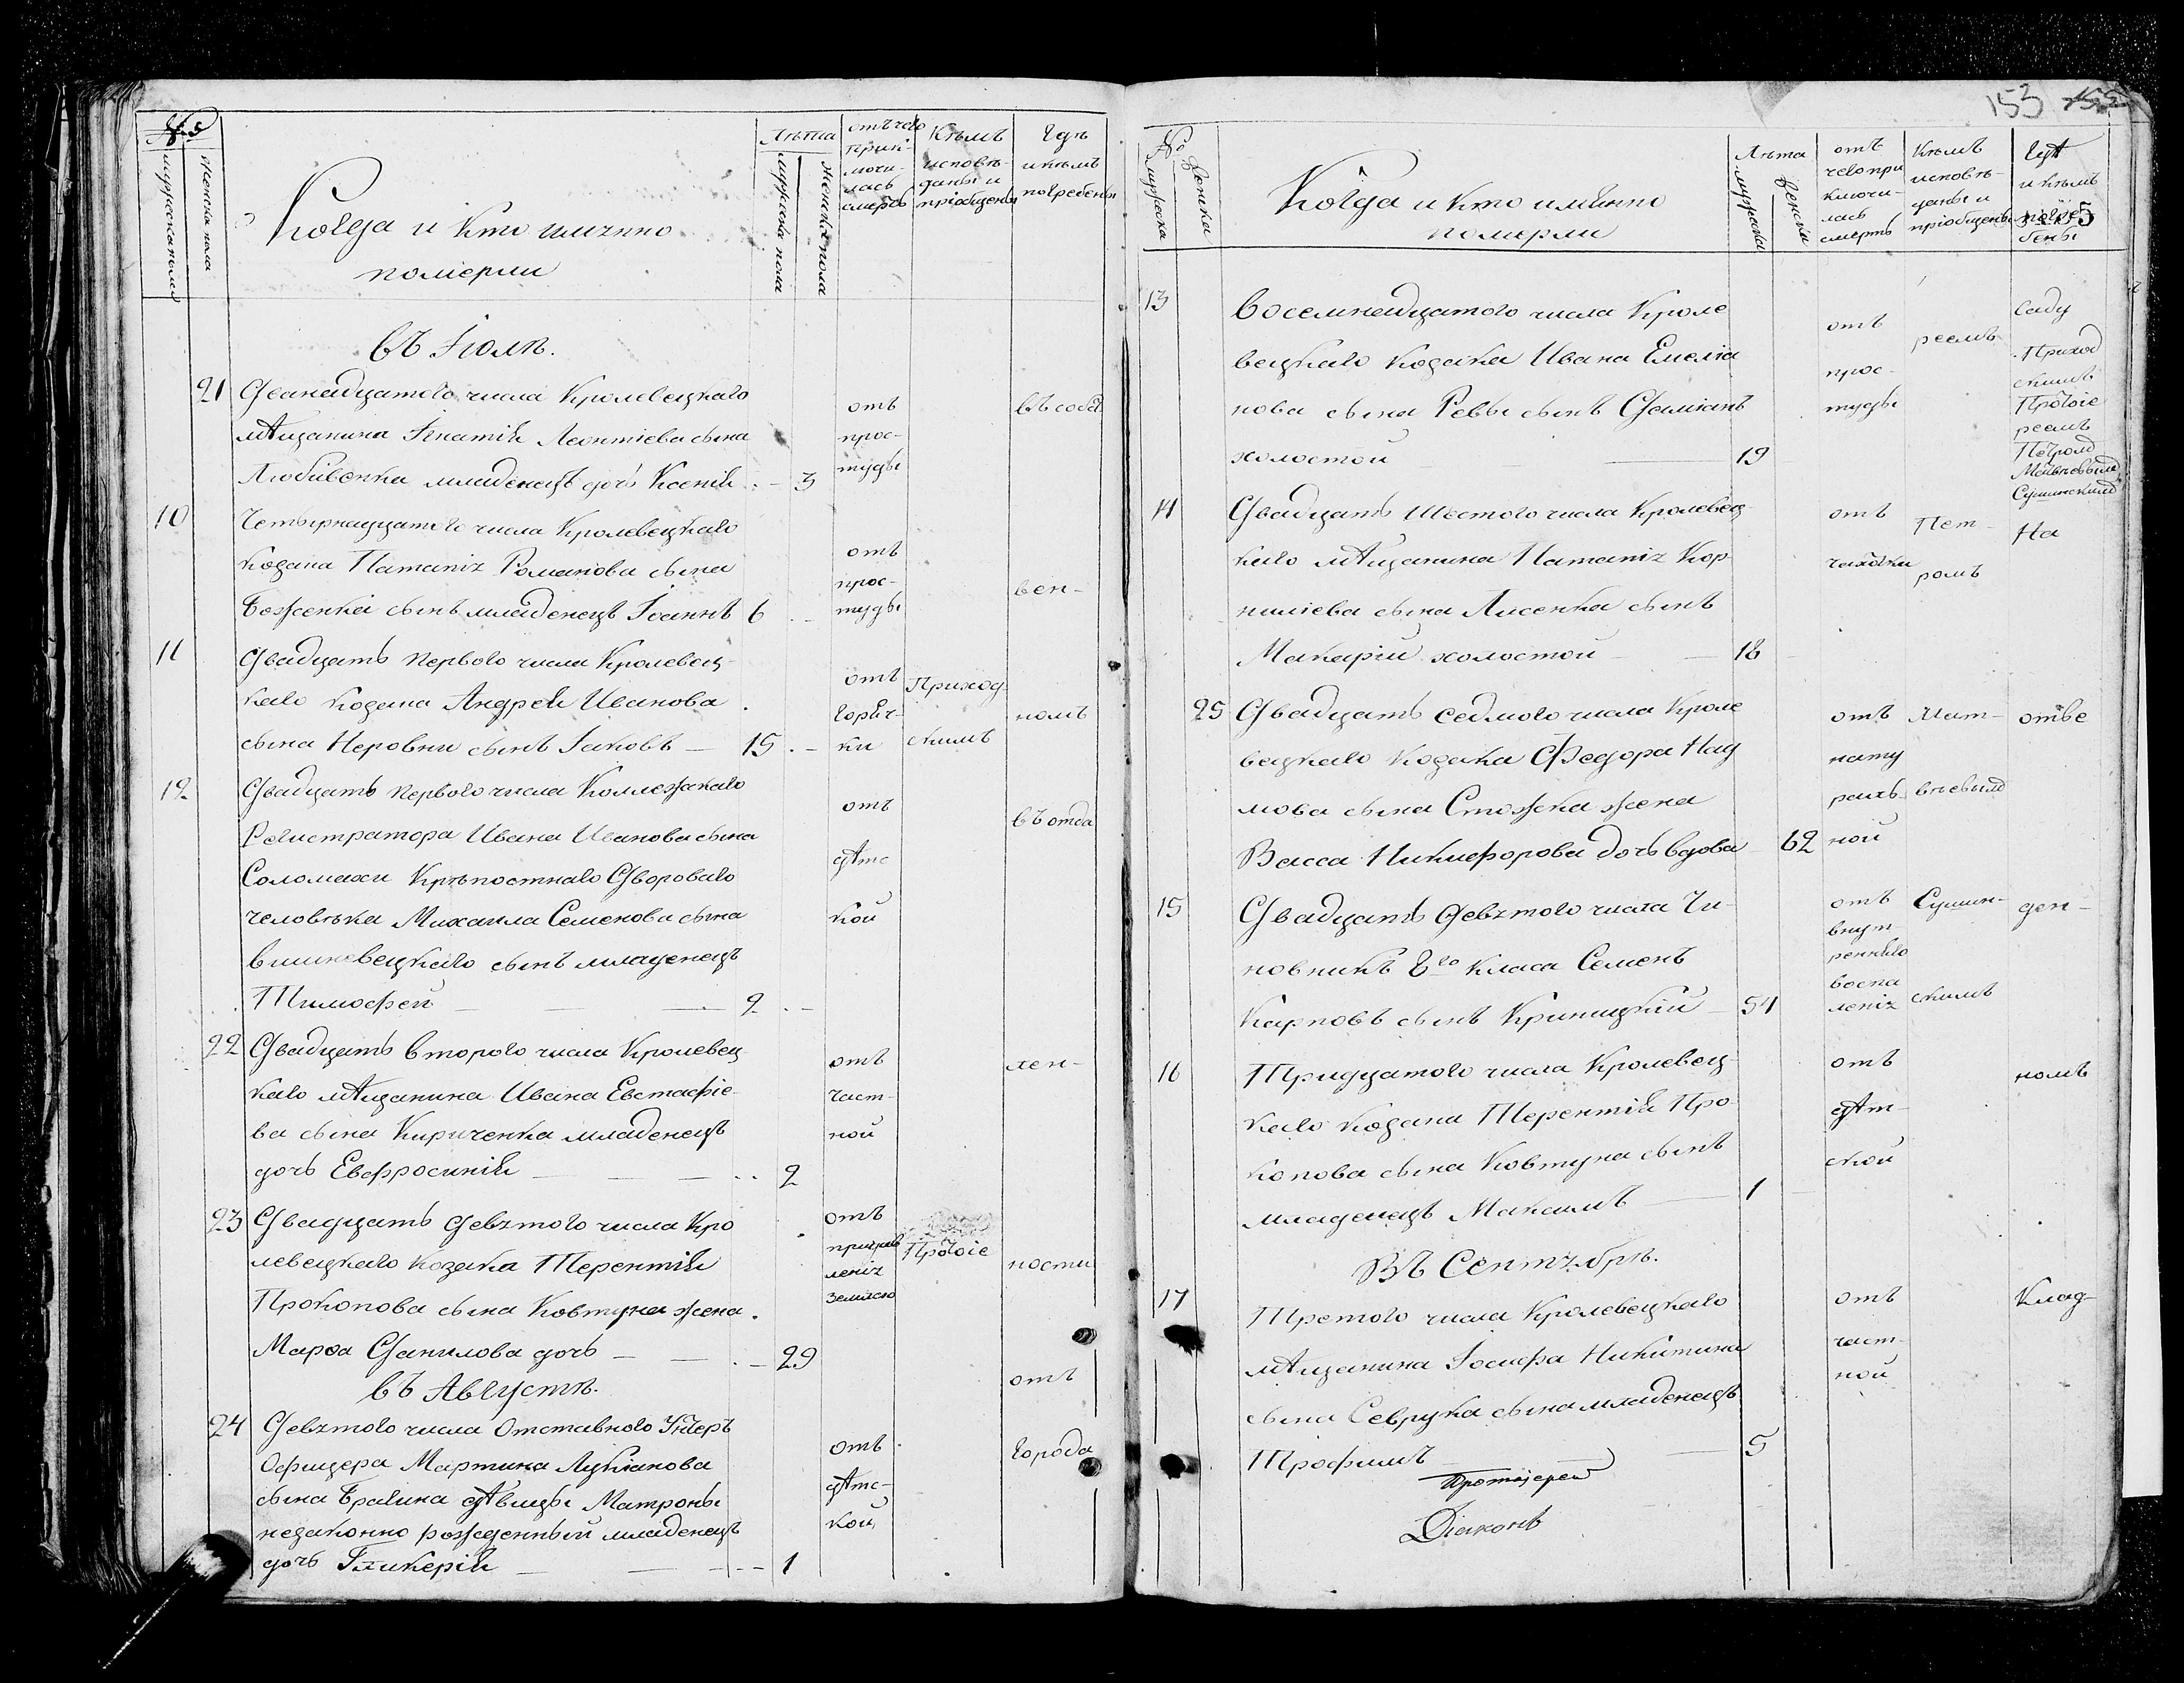 №
мужеска пола
женска пола
Когда и кто имянно
померли
Лѣта
мужеска пола
женска пола
отъ чего
приклю-
чи-
лась
смерть
Кѣмъ
исповѣ-
даны и
пріобщены
Гдѣ
и кѣмъ
погребены
въ Іюлѣ.
21 Дванадцатого числа Кролевецкаго
мѣщанина Игнатія Леонтіева сына
Любивенка младенецъ дочь Ксенія 3
отъ
прос-
туды
въ соб
10 Четырнадцатого числа Кролевецкаго
козака Патапія Романова сына
Боженка сынъ младенецъ Іоаннъ 6
отъ
прос-
туды
вен-
11 Двадцать первого числа Кролевец-
каго козака Андрея Иванова
сына Неровни сынъ Іаковъ 15
отъ
горяч-
ки
Приход
скимъ
номъ
12 Двадцать первого числа Коллежскаго
Регистратора Ивана Иванова сына
Соломахи Крѣпостнаго Дворового
человѣка Михаила Семенова сына
Вишневецкаго сынъ младенецъ
Тимофей 2
отъ
дѣтс
кой
въ отда
22 Двадцать второго числа Кролевец-
каго мѣщанина Ивана Евстафіе-
ва сына Кириченка младенецъ
дочь Евфросинія 2
отъ
част-
ной
лен-
23 Двадцать девятого числа Кро
левецкаго козака Терентія
Прокопова сына Ковтуна жена
Марѳа Данилова дочь 29
отъ
придав
ленія
землею
Протоіе
ности
въ Августѣ.
отъ
24 Девятого числа Отставного Унтеръ
Офицера Мартина Лукіанова
сына Брагина дѣвицы Матроны
незаконно рожденный младенецъ
дочь Гликерія 1
отъ
дѣтс-
кой
города
153
155
№
мужеска
женска
Когда и кто имянно
померли
Лѣта
мужеска
женска
отъ
чего при
ключи-
лась
смерть
Кѣмъ
исповѣ-
даны и
пріобщены
Гдѣ
и кѣмъ
погре-
бены
13 Восемнадцатого числа Кроле
вецкаго козака Ивана Емеліа
нова сына Ревы сынъ Даміанъ
холостой 19
отъ
прос-
туды
реемъ
саду
Приход
скимъ
Протоіе
реемъ
Петромъ
Матвѣевымъ
Сушинскимъ
14 Двадцать шестого числа Кролевец-
каго мѣщанина Патапія Кор-
ниліева сына Лисенка сынъ
Макарій холостой 18
отъ
чахотки
Пет-
ромъ
На
25 Двадцать седмого числа Кроле
вецкаго козака Федора Нау
мова сына Стожка жена
Васса Никифорова дочь вдова 62
отъ
нату
раль-
ной
Мат-
вѣевымъ
отве
15 Двадцать девятого числа Чи-
новникъ 8го класа Семенъ
Карповъ сынъ Криницкій 54
отъ
внут
реннего
воспа
ленія
Сушин-
скимъ
ден-
16 Тридцатого числа Кролевец-
каго козака Терентія Про-
копова сына Ковтуна сынъ
младенецъ Максимъ 1
отъ
дѣт-
ской
номъ
Въ Сентябрѣ.
17 Третого числа Кролевецкаго
мѣщанина Іосифа Никитина
сына Севрука сына младенецъ
Трофимъ 5
отъ
част-
ной
клад-
Протоіерей
Діаконъ